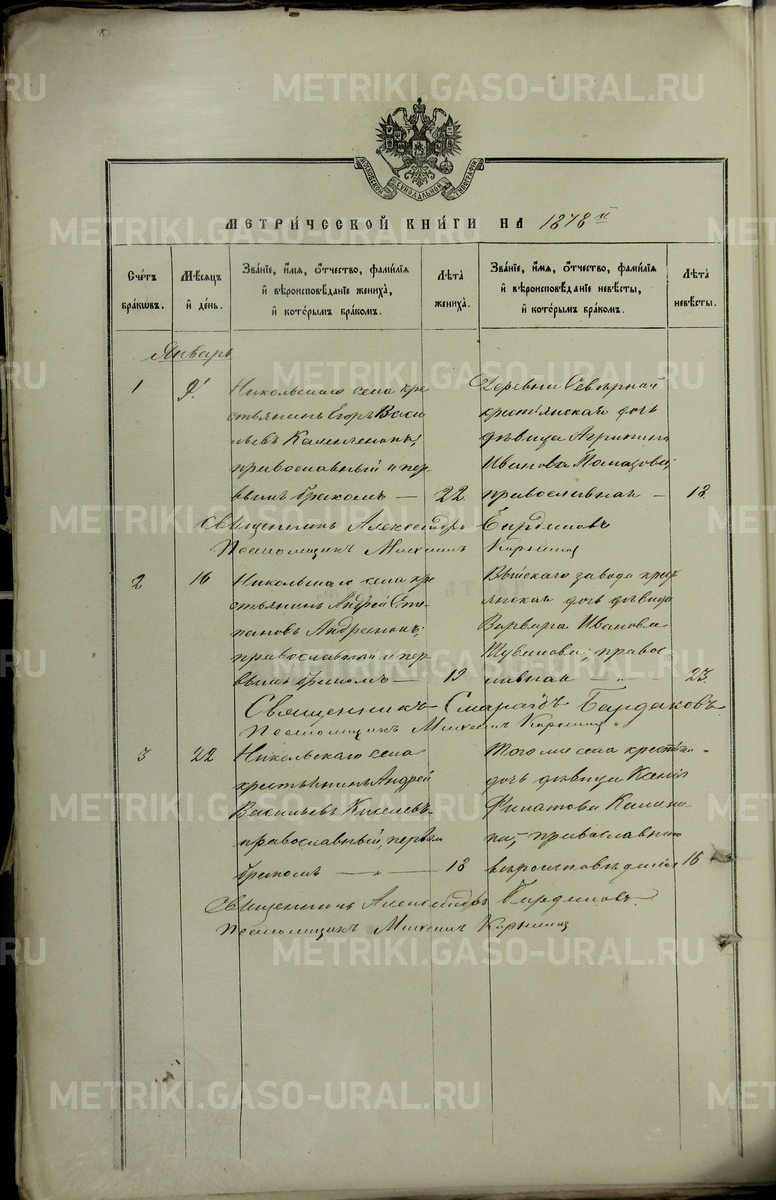 METRIKI.GASO-URAL.RU
МОСКОВСКОЙ СѴНОДАЛЬНОЙ ТИПОГРАФІИ
МЕТРИ́ЧЕСКОЙ КНИ́ГИ НА 1878 й
Сче́тъ бра́кѡвъ.
Мѣ́сѧцъ и҆ де́нь.
Зва́нїе, и҆́мѧ, ѻ҆́тчество, фами́лїѧ
и҆ вѣроисповѣ́данїе жениха̀,
и҆ кото́рымъ бра́комъ.
Лѣ́та жениха̀.
Зва́нїе, и҆́мѧ, ѻ҆́тчество, фами́лїѧ
и҆ вѣроисповѣ́данїе невѣ́сты,
и҆ кото́рымъ бра́комъ.
Лѣ́та невѣ́сты.
Январь
1
9
Никольскаго села кре
стьянинъ Егоръ Васи
льевъ
православный и пер
вымъ бракомъ —
22.
Деревни Сѣверной
крестьянская дочь
дѣвица Агрипина
Иванова
православная —
18.
Священникъ Александръ Бирдюковъ
Псаломщикъ Михаилъ
2
16
Никольскаго села кре
стьянинъ Андрей Сте
пановъ
православный и пер
вымъ бракомъ —
19
Выйскаго завода крес
янская дочь дѣвица
Варвара Иванова
правос
лавная —
23.
Священникъ Смарагдъ Бирдюковъ.
Псаломщикъ Михаилъ
3
22
Никольскаго села
крестьянинъ Андрей
Васильевъ Киселевъ
православный, первымъ
бракомъ — „ —
18
Того же села крестьян
дочь дѣвица Ксенія
Филатова Калини
на, православнаго
вѣроисповѣданія
16
Священникъ Александръ Бирдюковъ.
Псаломщикъ Михаилъ